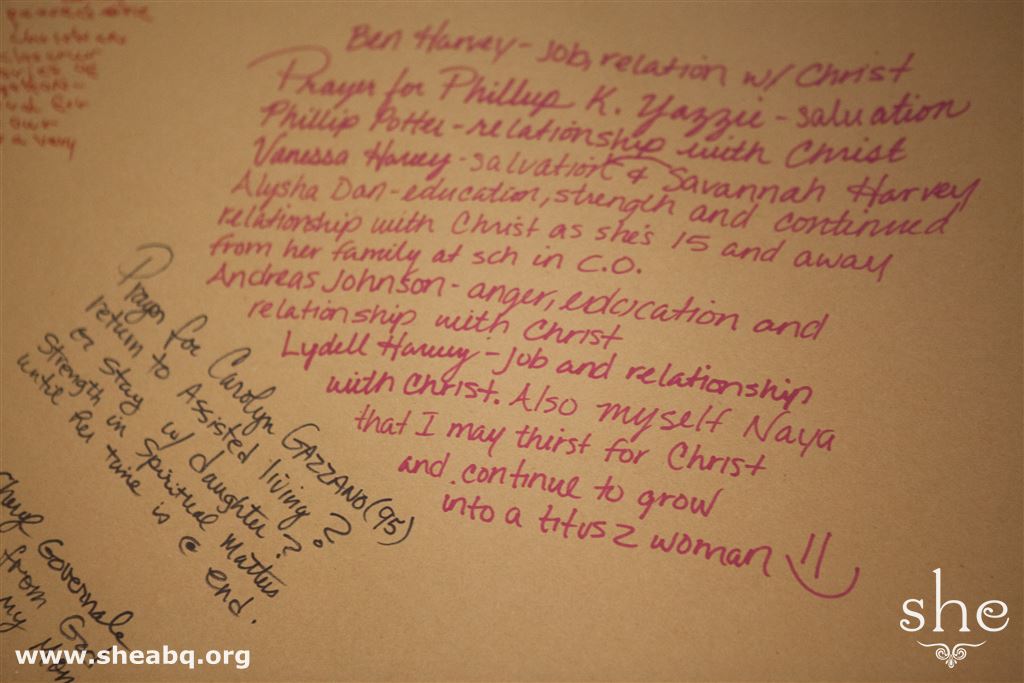 Ben Harvey - Job, relation w/ Christ
Prayer for Phillup K. Yazzie - saluation
Phillip Potter - relationship with Christ
Vanessa Harvey - salvation & Savannah Harvey
Alysha Dan - education, strength and continued
relationship with Christ as she's 15 and away
from her family at sch in C.O.
Andreas Johnson - anger, education and
relationship with Christ
Lydell Harvey - Job and relationship
with Christ. Also myself Naya
that I may thirst for Christ
and continue to grow
into a titus 2 woman
Prayer for Carolyn GAZZANO (95)
return to Assisted living?
or stay w/ daughter?
strength in Spiritual Matters
until her time is @ end.
Cheryl Governale
from
my Mom
www.sheabq.org
she